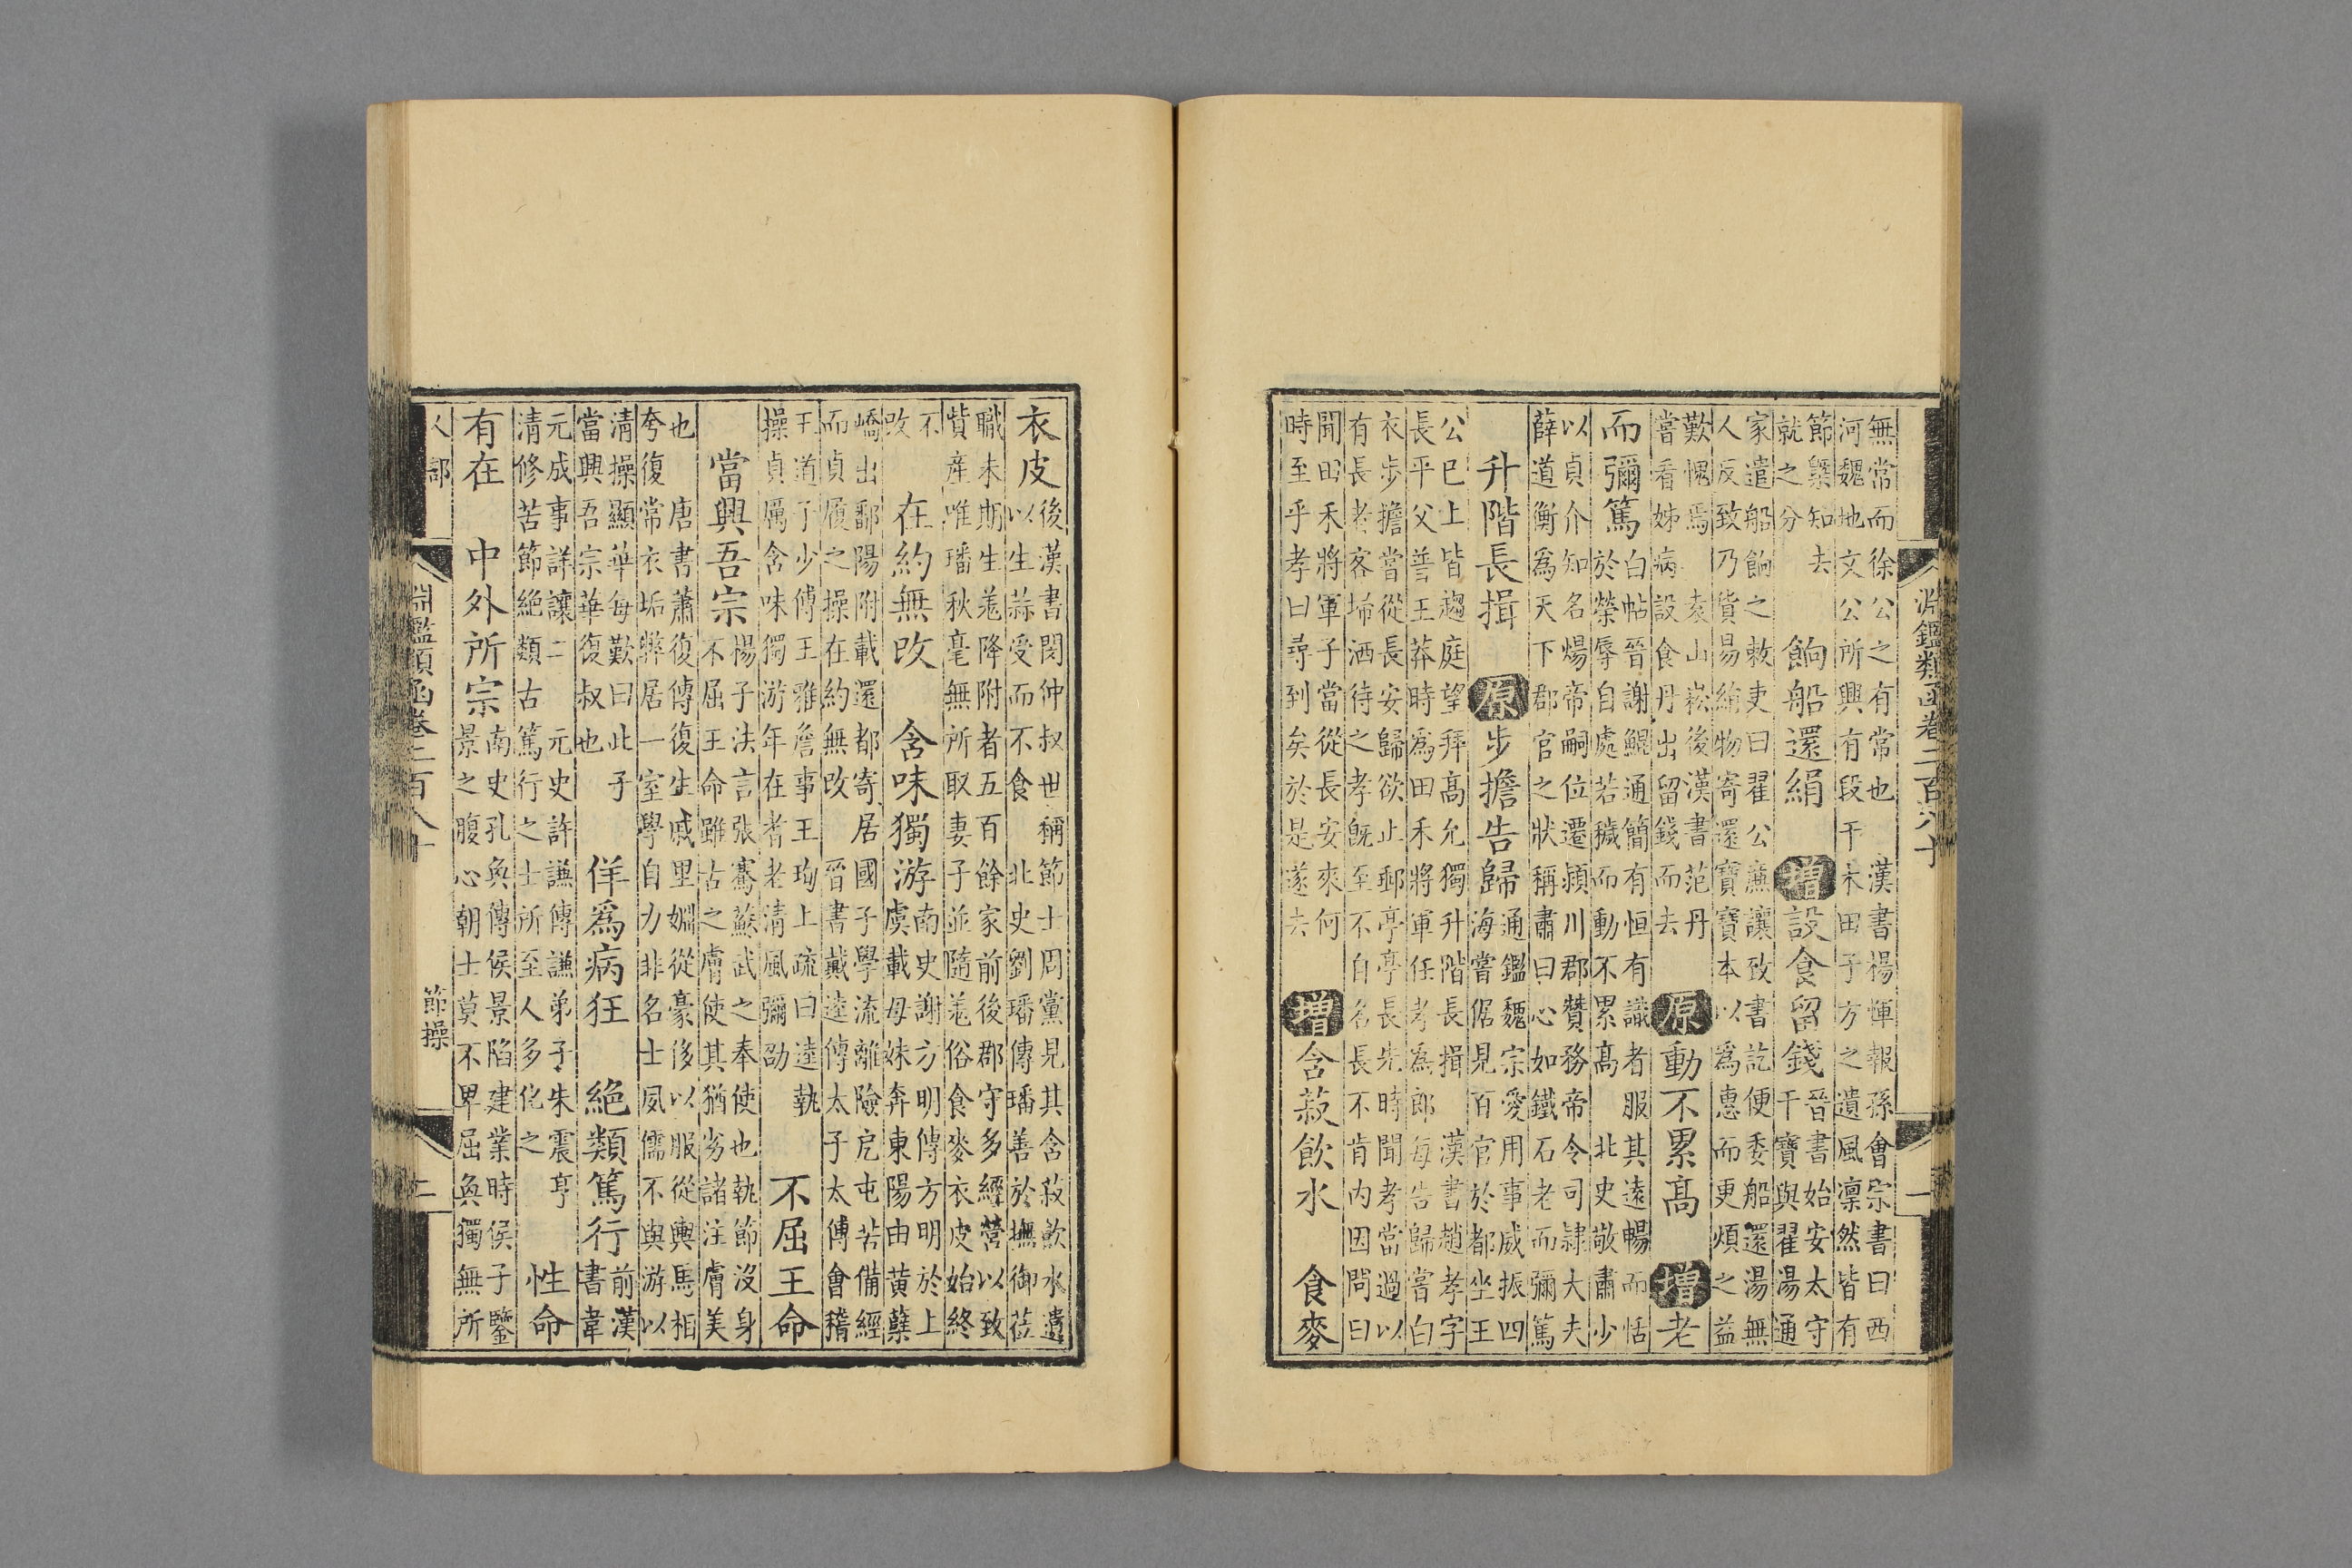 淵鑑類函卷二百八十 一
無常而徐公之有常也 漢書楊惲報孫會宗書曰西
河魏地文公所興有段干木田子方之遺風凛然皆有
節槩知去
就之分
餉船還絹 增設食留錢
晉書始安太守
干寶與翟湯通
家遣船餉之敕吏曰翟公廉讓致書訖便委船還湯無
人反致乃貨易絹物寄還寶寶本以爲惠而更煩之益
歎愧焉 袁山崧後漢書范丹
嘗看姊病設食丹出留錢而去
原動不累高 增老
而彌篤
白帖晉謝鯤通簡有恒有識者服其遠暢而恬
於榮辱自處若穢而動不累高 北史敬肅少
以貞介知名煬帝嗣位遷潁川郡贊務帝令司隸大夫
薛道衡爲天下郡官之狀稱肅曰心如鐵石老而彌篤
升階長揖 原步擔告歸
通鑑魏宗愛用事威振四
海嘗倨見百官於都坐王
公已上皆趨庭望拜高允獨升階長揖 漢書趙孝字
長平父普王莽時爲田禾將軍任孝爲郎每告歸嘗白
衣步擔當從長安歸欲止郵亭亭長先時聞孝當過以
有長者客埽洒待之孝旣至不自名長不肯内因問曰
聞田禾將軍子當從長安來何
時至乎孝曰尋到矣於是遂去
增含菽飲水 食麥
衣皮
後漢書閔仲叔世稱節士周黨見其含菽飲水遺
以生蒜受而不食 北史劉璠傳璠善於撫御莅
職未期生羌降附者五百餘家前後郡守多經營以致
貲産唯璠秋毫無所取妻子並隨羌俗食麥衣皮始終
不
改
在約無改 含味獨游
南史謝方明傳方明於上
虞載母妹奔東陽由黃蘗
嶠出鄱陽附載還都寄居國子學流離險戹屯苦備經
而貞履之操在約無改 晉書戴逵傳太子太傅會稽
王道子少傅王雅詹事王珣上疏曰逵執
操貞厲含味獨游年在耆老清風彌劭
不屈王命
當興吾宗
楊子法言張騫蘇武之奉使也執節沒身
不屈王命雖古之膚使其猶劣諸注膚美
也 唐書蕭復傳復生戚里姻從豪侈以服從輿馬相
夸復常衣垢弊居一室學自力非名士夙儒不與游以
清操顯華每歎曰此子
當興吾宗華復叔也
佯爲病狂 絕類篤行
前漢
書韋
元成事詳讓二 元史許謙傳謙弟子朱震亨
清修苦節絕類古篤行之士所至人多化之
性命
有在 中外所宗
南史孔奐傳侯景陷建業時侯子鑒
景之腹心朝士莫不卑屈奐獨無所
人部 淵鑑類函卷二百八十 節操 二